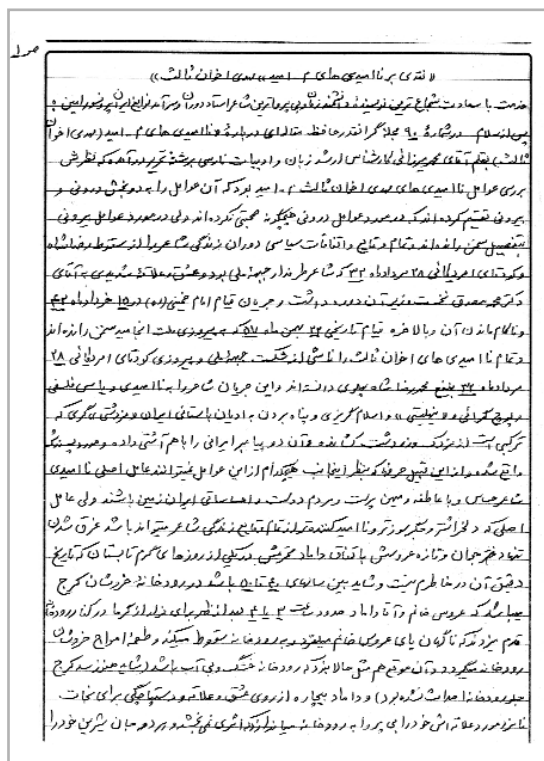 ص ۱
«نقدی بر ناامیدی های م. امید «مهدی اخوان ثالث»
خدمت با سعادت شجاع ترین نویسنده و اندیشمند و بی پرواترین شاعر استاد دوران و سرآمد نوابغ ایران پروفسور امینی
پس از سلام در شماره ۹۰ مجله گرانقدر حافظ مقاله ای درباره ناامیدی های م. امید (مهدی اخوان
ثالث) بقلم آقای محمد میرزائی کارشناس ارشد زبان و ادبیات فارسی برشته تحریر درآمده که نظرش
بررسی عوامل ناامیدی های مهدی اخوان ثالث م. امید بود که آن عوامل را به دو بخش درونی و
بیرونی تقسیم کرده اند که در مورد عوامل درونی هیچگونه صحبتی نکرده اند ولی در مورد عوامل بیرونی
بتفصیل سخن رانده اند و تمام وقایع و اتفاقات سیاسی دوران زندگی شاعر را از سقوط رضا شاه
و کودتای امریکائی ۲۸ مرداد ماه ۳۲ که شاعر طرفدار جبهه ملی بود و عشق و علاقه شدیدی به آقای
دکتر محمد مصدق نخست وزیر آن دوره داشت و جریان قیام امام خمینی (ره) در ۱۵ خرداد ماه ۴۲
و ناکام ماندن آن و بالاخره قیام تاریخی ۲۲ بهمن ماه ۵۷ که به پیروزی ملت انجامید سخن رانده اند
و تمام ناامیدی های اخوان ثالث را ناشی از شکست جبهه ملی و پیروزی کودتای امریکائی ۲۸
مرداد ماه ۳۲ بنفع محمد رضا شاه پهلوی دانسته اند و این جریان شاعر را به ناامیدی و یاس فلسفی
و پوچ گرائی و «نیهلیستی» و اسلام گریزی و پناه بردن به ادیان باستانی ایران و مزدشتی گری که
ترکیبی است از مزدک و زردشت کشانده و آن دو پیامبر ایرانی را با هم آشتی داده و مورد پسندش
واقع شده و از این قبیل حرفها که بنظر اینجانب هیچکدام از این عوامل نمیتوانند عامل اصلی ناامیدی
شاعر حساس و با عاطفه و میهن پرست و مردم دوست و احساساتی ایران زمین باشند ولی عامل
اصلی که دلخراشتر و جگرسوزتر و ناامید کننده تر از تمام وقایع زندگی شاعر میتواند باشد غرق شدن
تنها دختر جوان و تازه عروسش باتفاق داماد محبوبش در یکی از روزهای گرم تابستان که تاریخ
دقیق آن در خاطرم نیست و شاید بین سالهای ۴۰ تا ۵۰ باشد در رودخانه خروشان کرج
میباشد که عروس خانم و آقا داماد حدود ساعت ۳ یا ۴ بعد از ظهر برای فرار از گرما در کنار رودخانه
قدم میزدند که ناگهان پای عروس خانم میلغزد و به رودخانه سقوط میکند و طعمه امواج خروشان
رودخانه میگردد و آن موقع هم مثل حالا نبود که رودخانه خشک و بی آب باشد (شاید هنوز سد کرج
جلو رودخانه احداث نشده بود) و داماد بیچاره از روی عشق و علاقه و دستپاچگی برای نجات
نامزد مورد علاقه اش خود را بی پروا به رودخانه میاندازد که اثری نمی بخشد و هر دو جان شیرین خود را